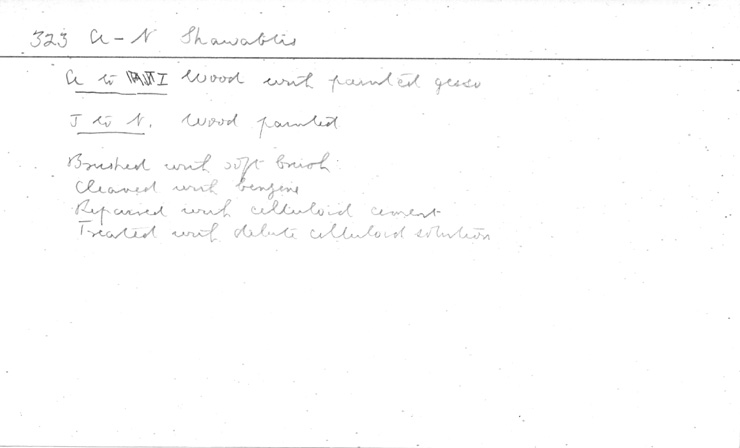 323 A-N Shawabtis
A to I Wood with painted gesso
J to N. Wood painted
Brushed with soft brush.
Cleaned with benzine
Repaired with celluloid cement
Treated with delute celluloid solution